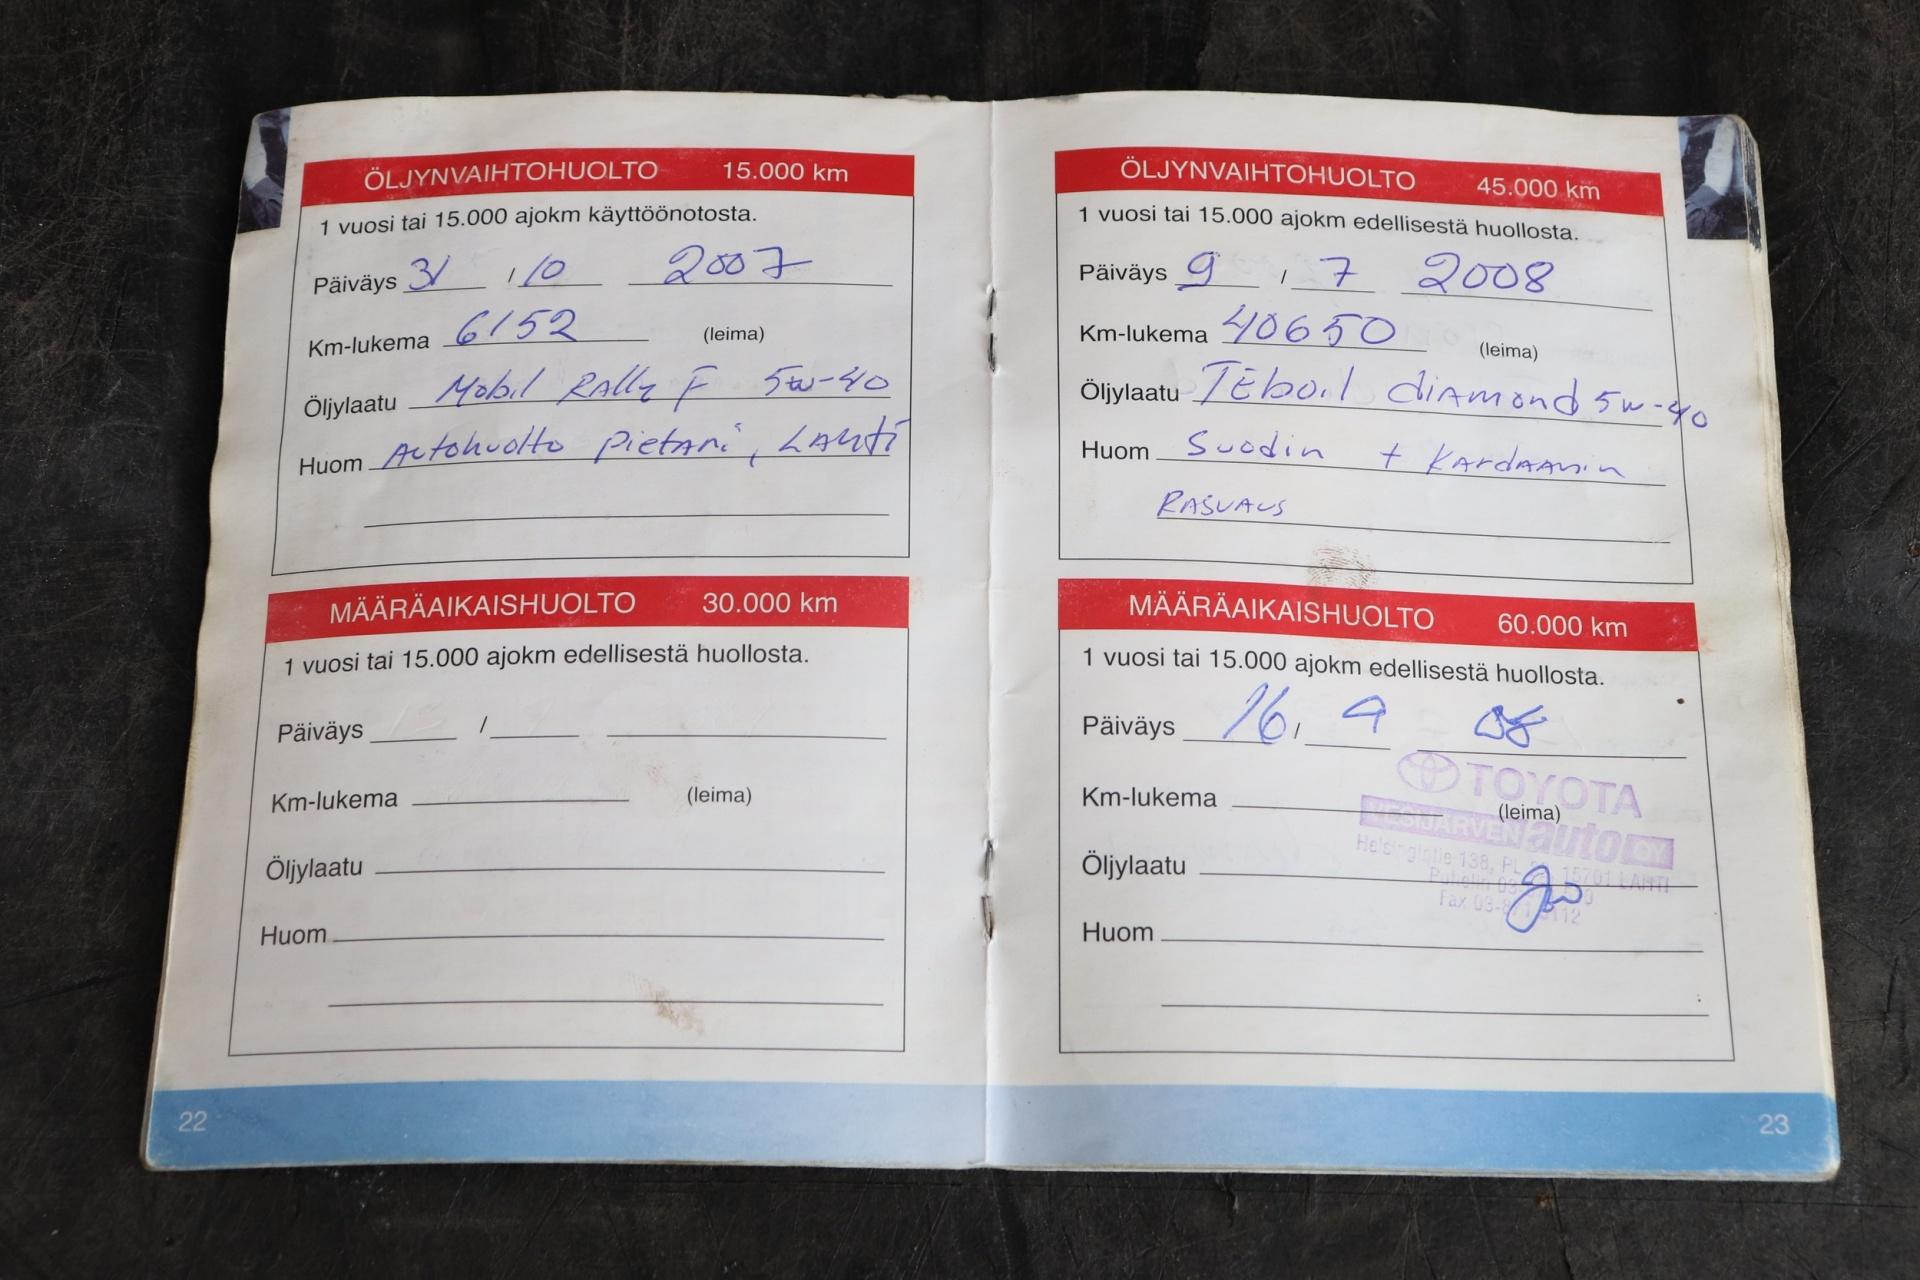 ÖLJYNVAIHTOHUOLTO 15.000 km
1 vuosi tai 15.000 ajokm käyttöönotosta.
Päiväys 31 / 10 2007
Km-lukema 6152 (leima)
Öljylaatu Mobil Rally F 5w-40
Huom Autohuolto Pietari, LAHTI
MÄÄRÄAIKAISHUOLTO 30.000 km
1 vuosi tai 15.000 ajokm edellisestä huollosta.
Päiväys /
Km-lukema (leima)
Öljylaatu
Huom
22
ÖLJYNVAIHTOHUOLTO 45.000 km
1 vuosi tai 15.000 ajokm edellisestä huollosta.
Päiväys 9 / 7 2008
Km-lukema 40650 (leima)
Öljylaatu TEboil diAmond 5w-40
Huom Suodin + KArdAAnin
RASVAUS
MÄÄRÄAIKAISHUOLTO 60.000 km
1 vuosi tai 15.000 ajokm edellisestä huollosta.
Päiväys 16 / 9 08
TOYOTA
Km-lukema (leima)
VESIJÄRVEN auto OY
Helsingintie 138, PL 15701 LAHTI
Öljylaatu
Puhelin
Fax
Huom
23